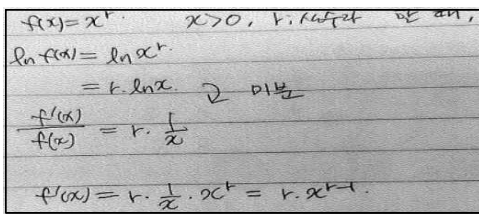 f(x) = x^r. x>0, r: 실수라 할 때,
ln f(x) = ln x^r.
= r. ln x. 미분
f'(x)/f(x) = r. 1/x
f'(x) = r. 1/x. x^r = r. x^(r-1).